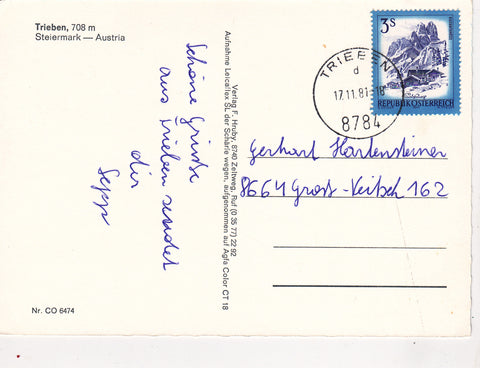 Trieben, 708 m
Steiermark — Austria
Schöne Grüsse
aus Trieben sendet
dir
Sepp
Verlag F. Hruby, 8740 Zeltweg, Ruf (0 35 77) 22 92
Aufnahme Leicaflex SL der Schärfe wegen, aufgenommen auf Agfa Color CT 18
3 S
REPUBLIK ÖSTERREICH
TRIEBEN
d
17.11.81-18
8784
Gerhart Hartensteiner
8664 Gross-Veitsch 162
Nr. CO 6474